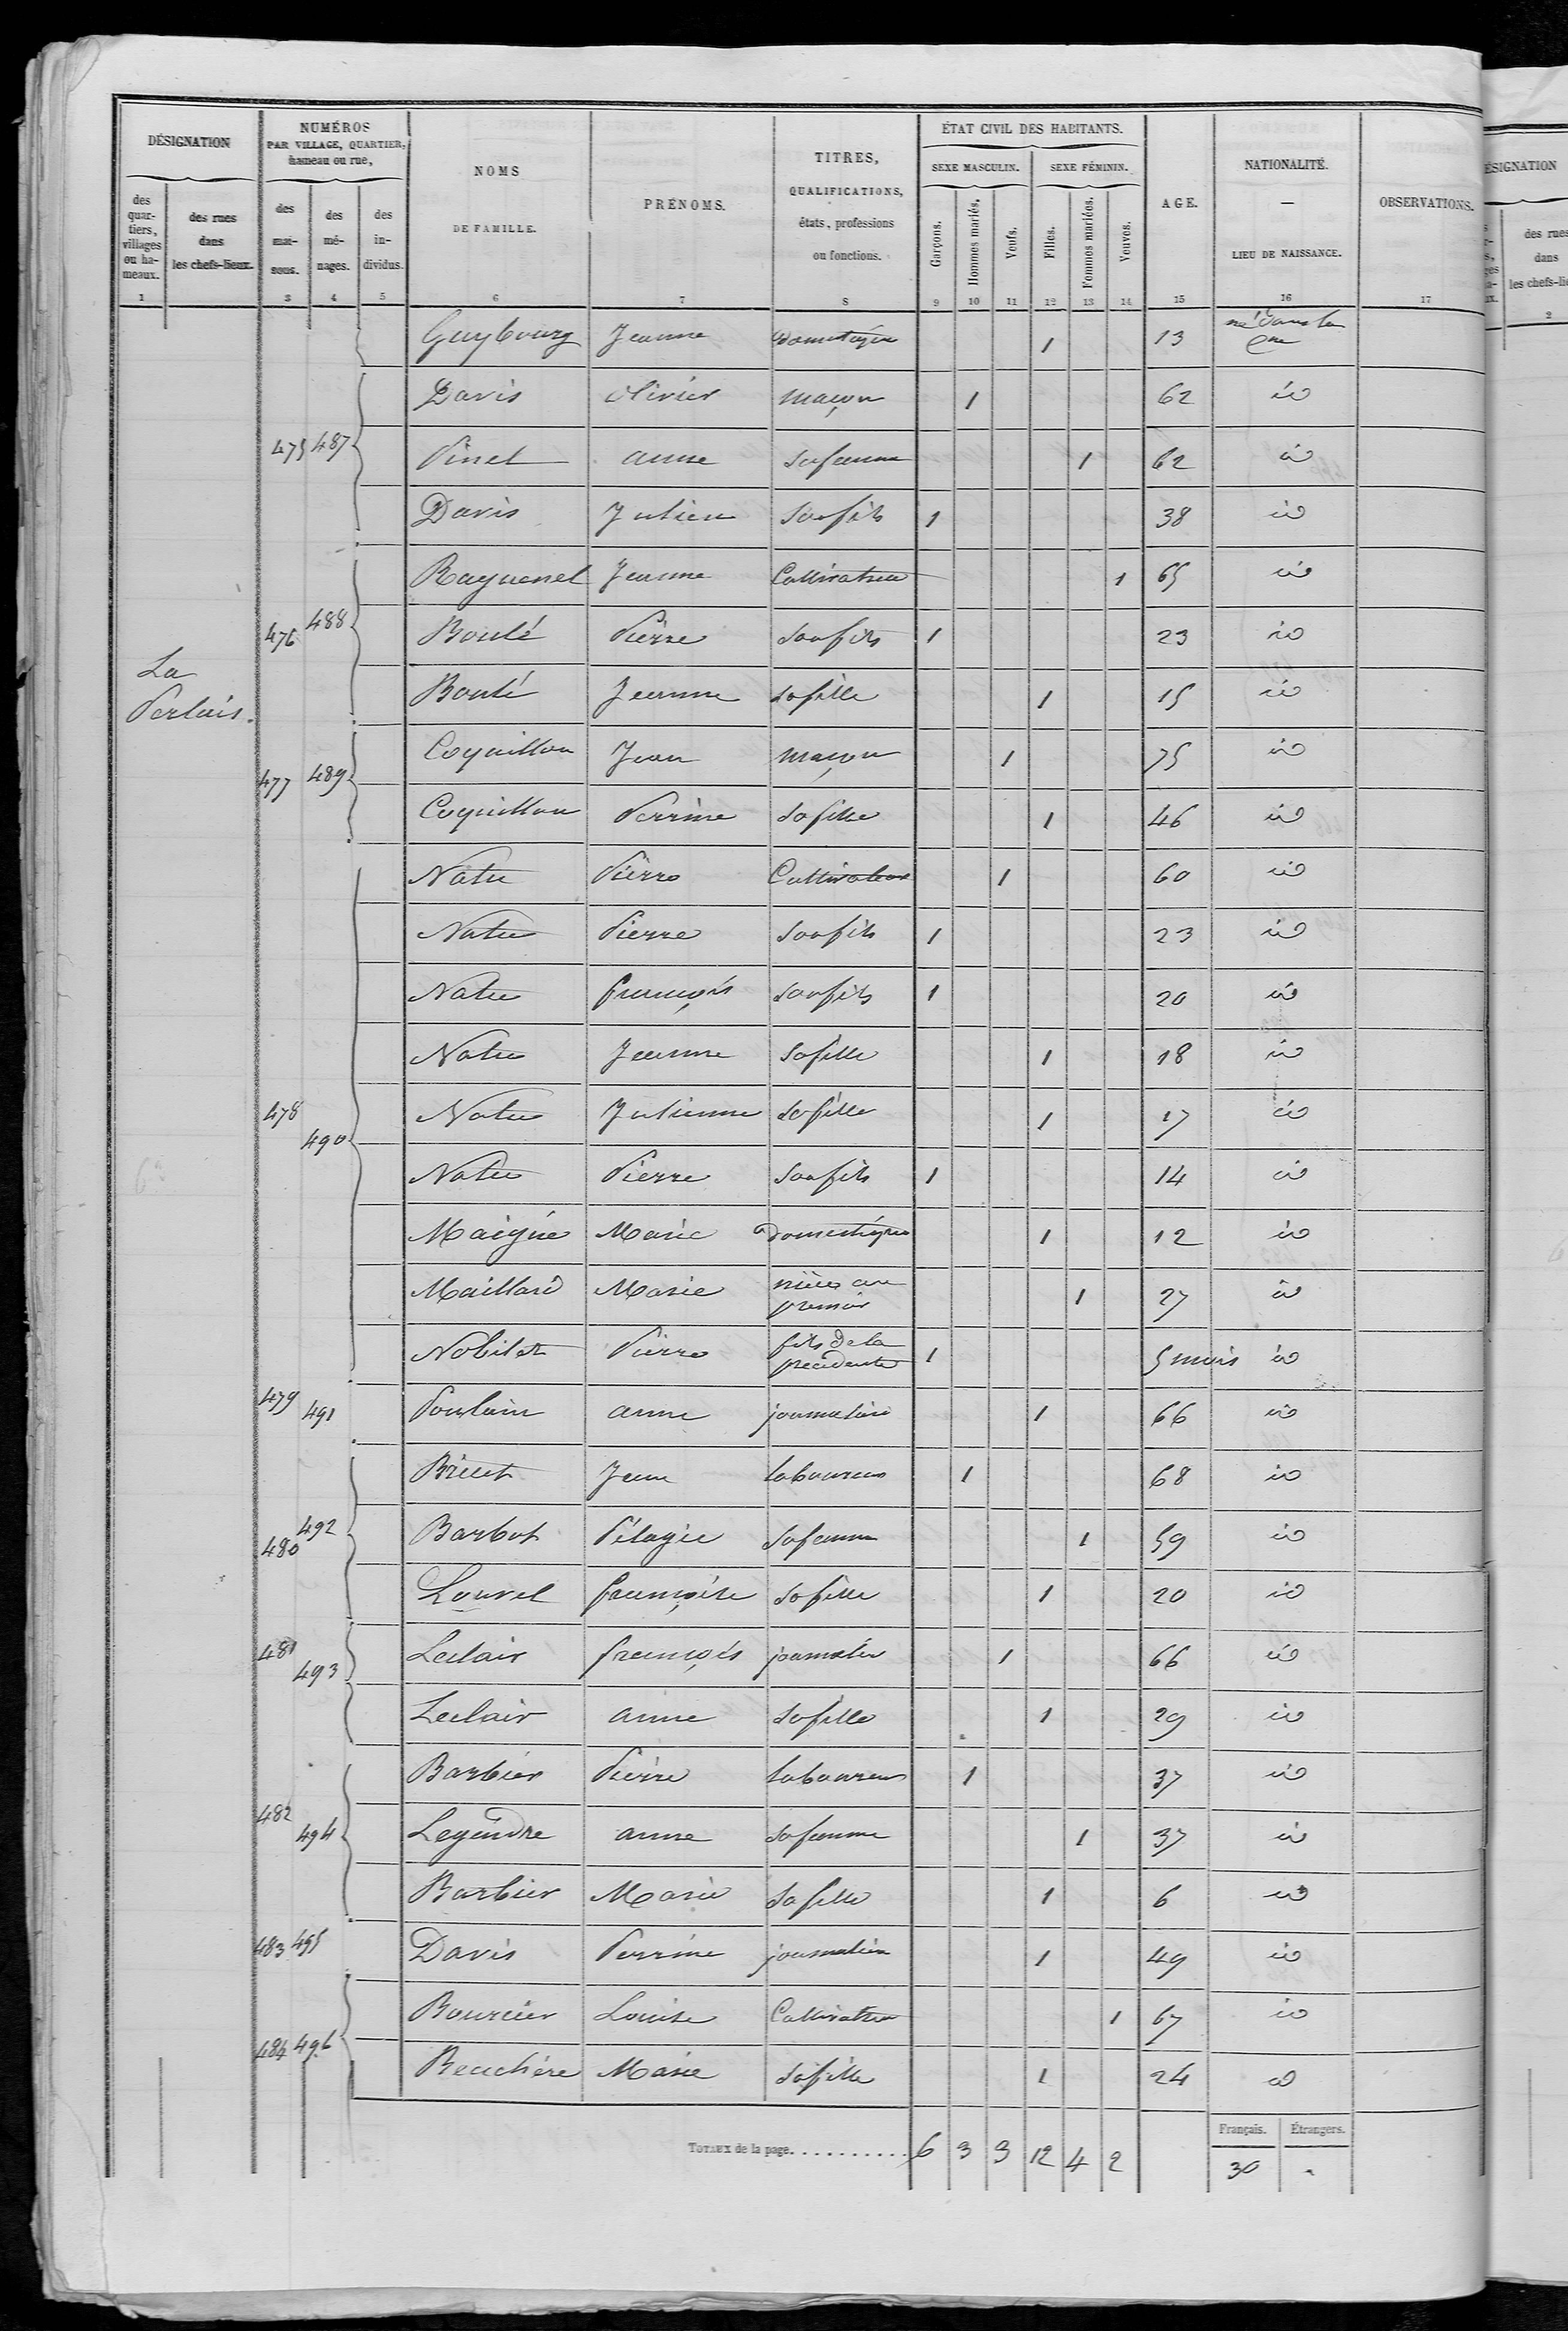 DÉSIGNATION
NUMÉROS
PAR VILLAGE, QUARTIER,
hameau ou rue,
NOMS
DE FAMILLE.
PRÉNOMS.
TITRES,
QUALIFICATIONS,
états, professions
ou fonctions.
ÉTAT CIVIL DES HABITANTS.
SEXE MASCULIN. SEXE FÉMININ.
AGE.
NATIONALITÉ.
—
LIEU DE NAISSANCE.
OBSERVATIONS.
des quar-tiers, villages ou ha-meaux.
des rues dans les chefs-lieux.
des mai-sons.
des mé-nages.
des in-dividus.
Garçons. Hommes mariés. Veufs. Filles. Femmes mariées. Veuves.
1 3 4 5 6 7 8 9 10 11 12 13 14 15 16 17
La
Perlais.
Guybourg Jeanne domestique 1 13 né dans la Cne
475 487 Davis olivier maçon 1 62 id
Pinel anne sa femme 1 62 id
Davis Julien son fils 1 38 id
476 488 Raguenel Jeanne Cultivatrice 1 65 id
Boulé Pierre son fils 1 23 id
Boulé Jeanne sa fille 1 15 id
477 489 Coquillon Jean maçon 1 75 id
Coquillon Perrine sa fille 1 46 id
478 490 Natu Pierre Cultivateur 1 60 id
Natu Pierre son fils 1 23 id
Natu françois son fils 1 20 id
Natu Jeanne sa fille 1 18 id
Natu Julienne sa fille 1 17 id
Natu Pierre son fils 1 14 id
Maigné Marie domestique 1 12 id
Maillard Marie nièce au premier 1 27 id
Nobilet Pierre fils de la précédente 1 5 mois id
479 491 Poulain anne journalière 1 66 id
480 492 Briect Jean laboureur 1 68 id
Barbot Pélagie sa femme 1 59 id
Louvel françoise sa fille 1 20 id
481 493 Leclair françois journalier 1 66 id
Leclair anne sa fille 1 29 id
482 494 Barbier Pierre laboureur 1 37 id
Legendre anne sa femme 1 37 id
Barbier Marie sa fille 1 6 id
483 495 Davis Perrine journalière 1 49 id
484 496 Bourcier Louise Cultivatrice 1 67 id
Beuchère Marie sa fille 1 24 id
TOTAUX de la page........... 6 3 3 12 4 2
Français. Étrangers.
30 "
ÉSIGNATION
des rues
dans
les chefs-li
2